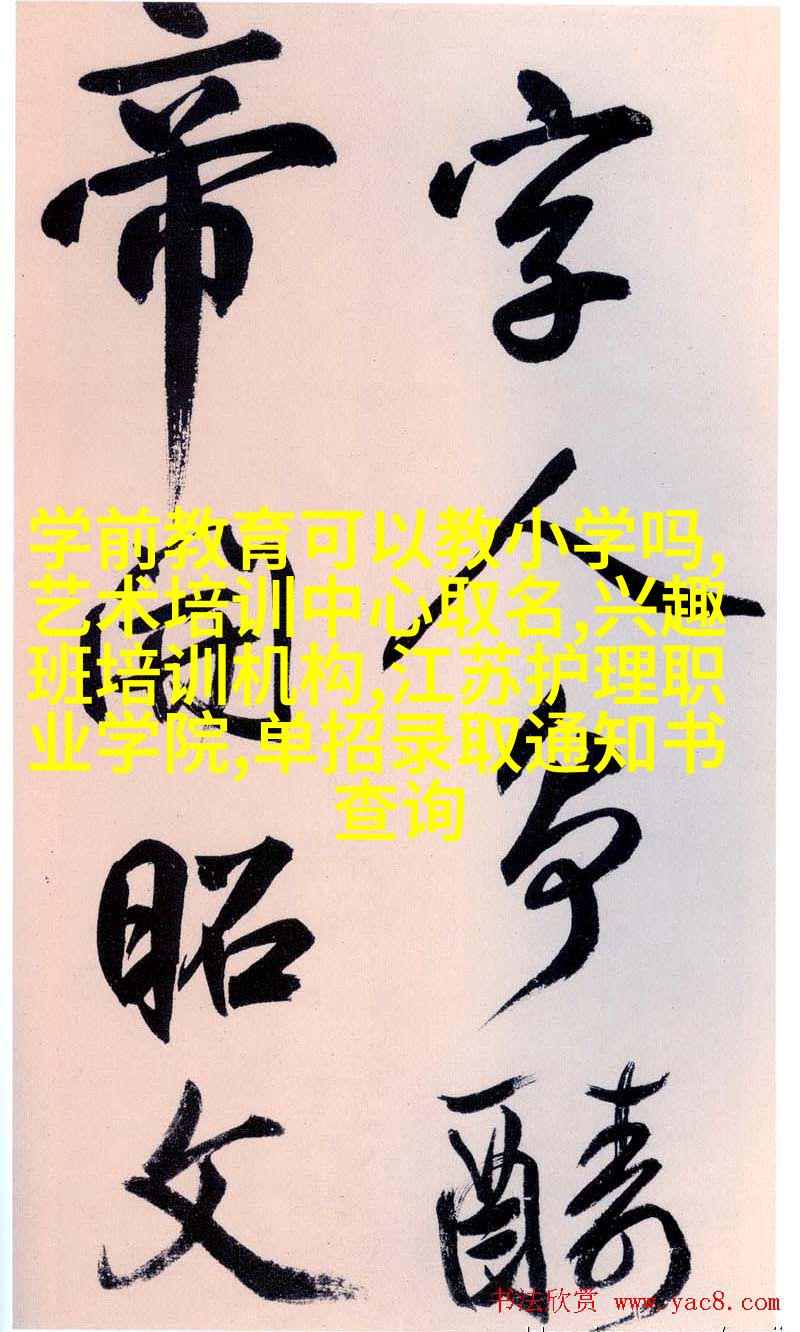 字人争醻
帝
昭文
学前教育可以教小学吗,
艺术培训中心取名,兴趣
班培训机构,江苏护理职
业学院,单招录取通知书
查询
书法欣赏 www.yac8.com